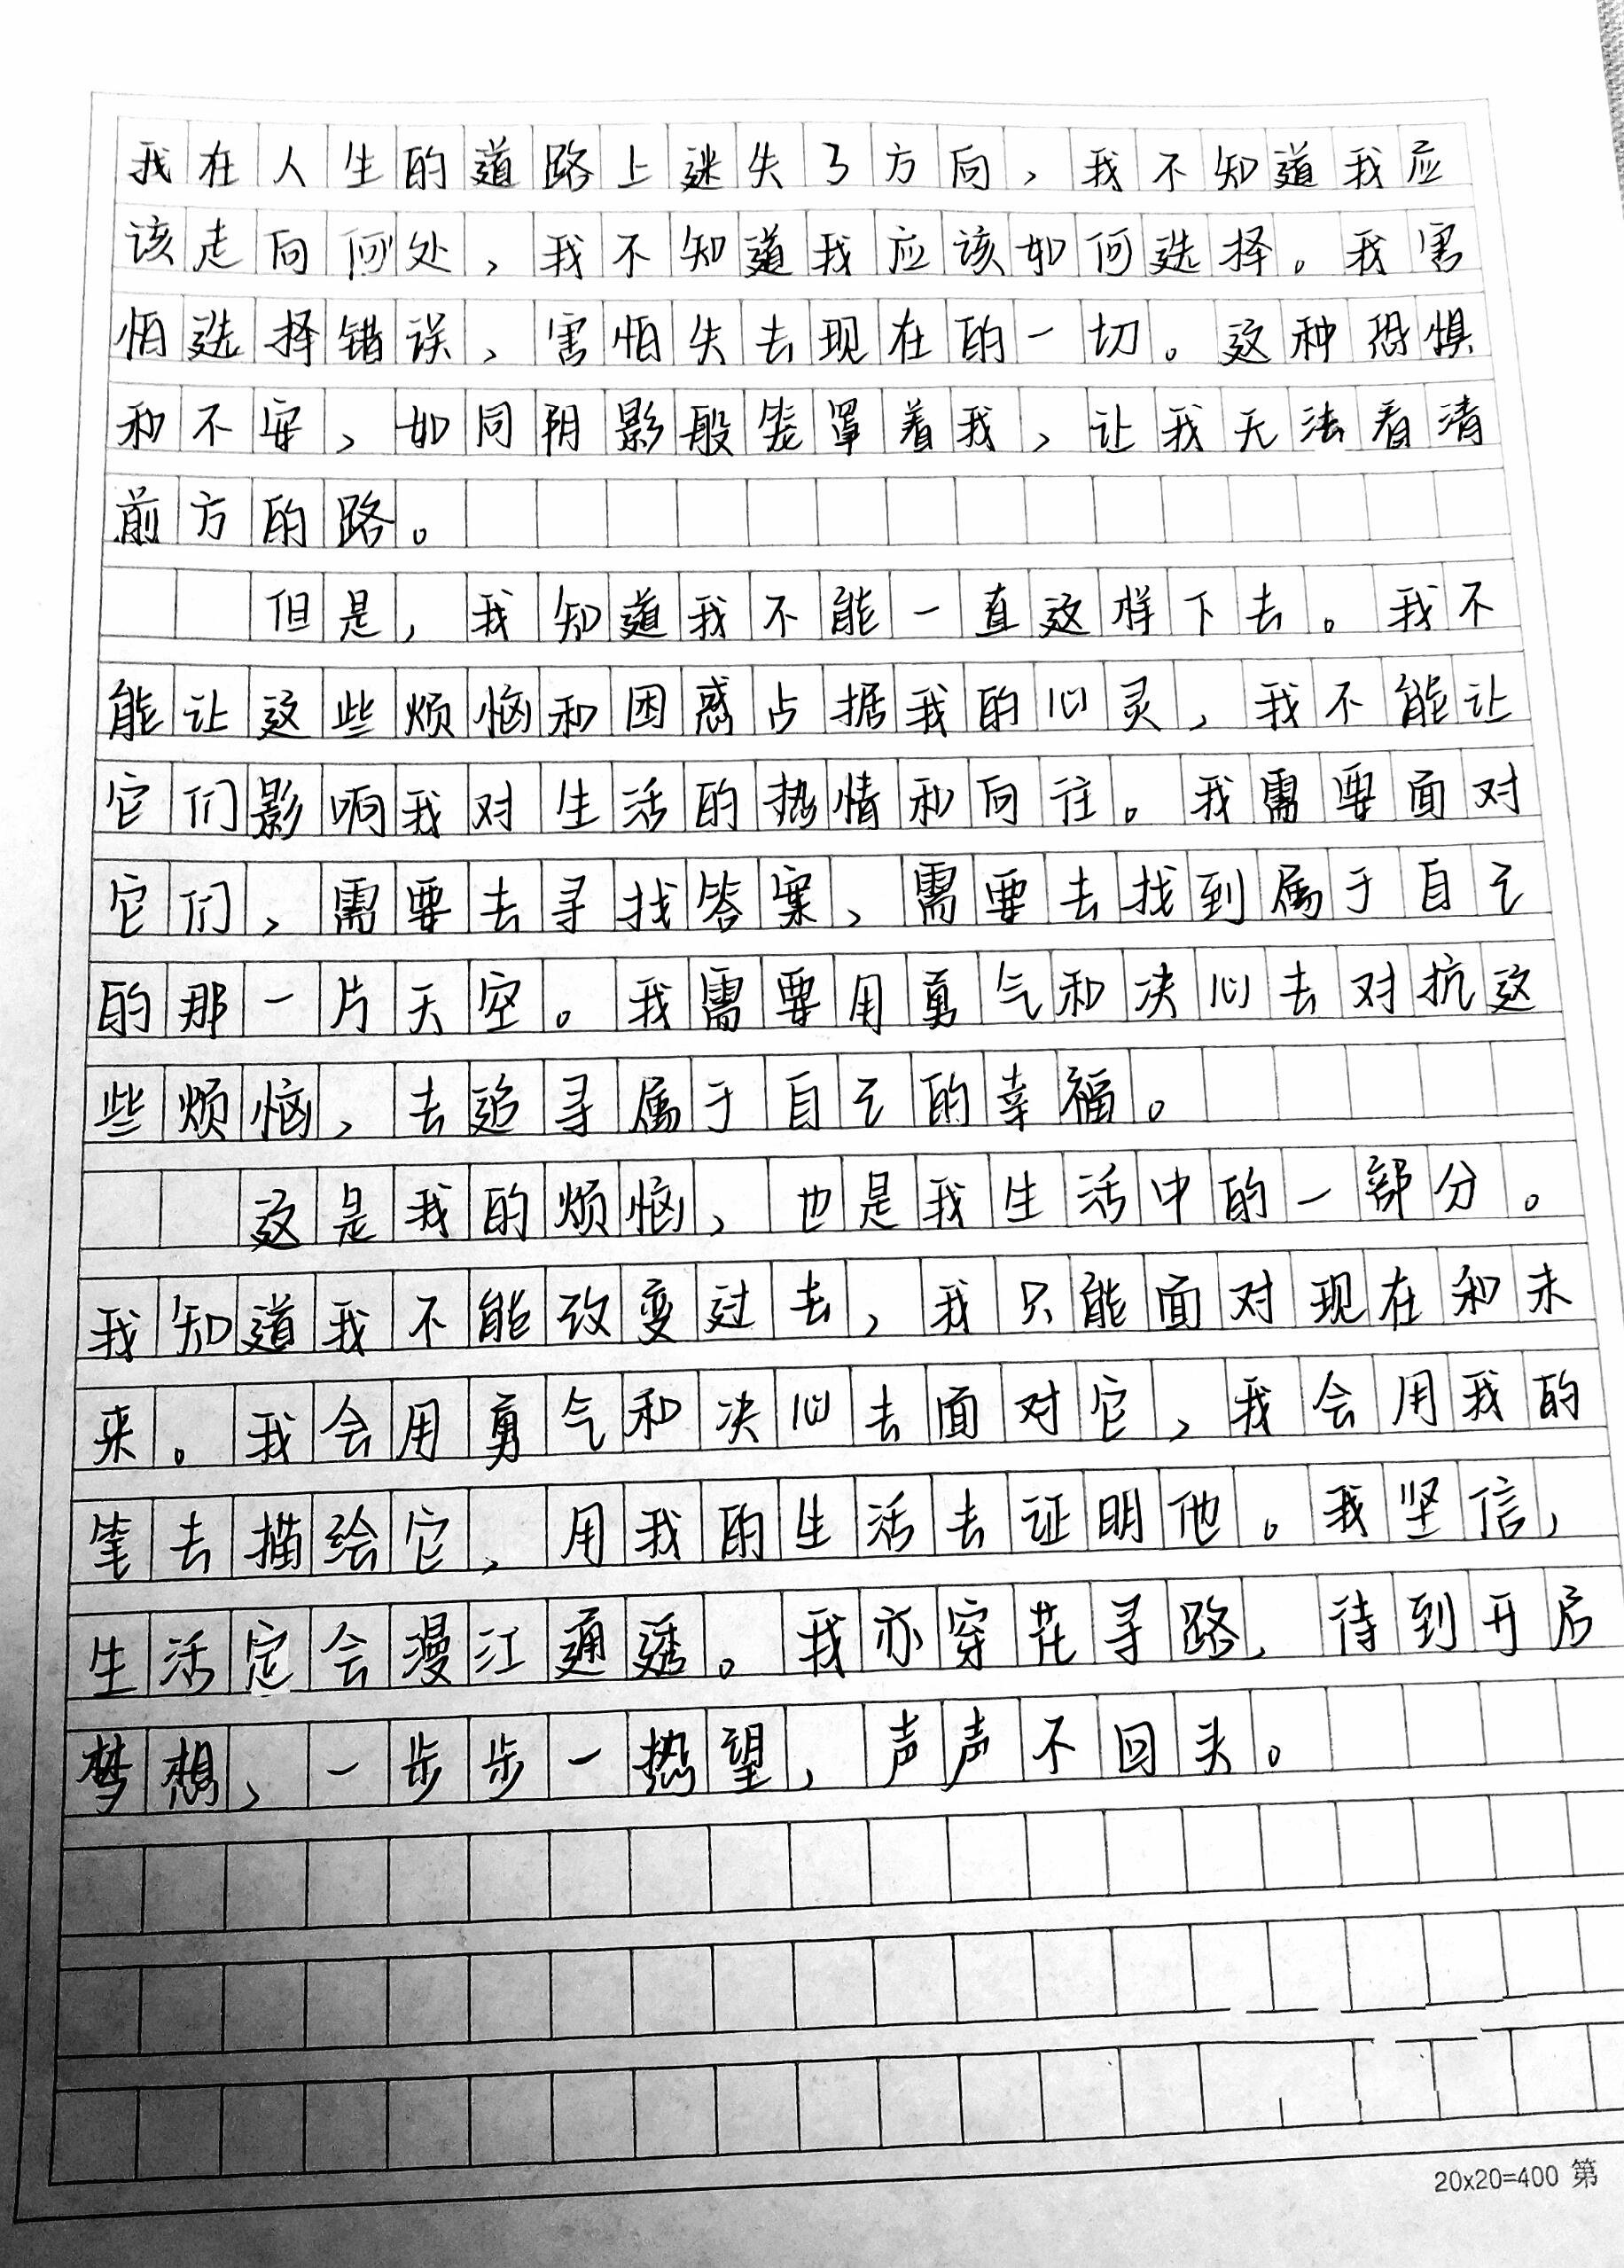 我在人生的道路上迷失了方向，我不知道我应
该走向何处，我不知道我应该如何选择。我害
怕选择错误，害怕失去现在的一切。这种恐惧
和不安，如同阴影般笼罩着我，让我无法看清
前方的路。
但是，我知道我不能一直这样下去。我不
能让这些烦恼和困惑占据我的心灵，我不能让
它们影响我对生活的热情和向往。我需要面对
它们，需要去寻找答案，需要去找到属于自己
的那一片天空。我需要用勇气和决心去对抗这
些烦恼，去追寻属于自己的幸福。
这是我的烦恼，也是我生活中的一部分。
我知道我不能改变过去，我只能面对现在和未
来。我会用勇气和决心去面对它，我会用我的
笔去描绘它，用我的生活去证明他。我坚信，
生活定会漫江通透。我亦穿花寻路，待到开启
梦想，一步步一热望，声声不回头。
20x20=400 第